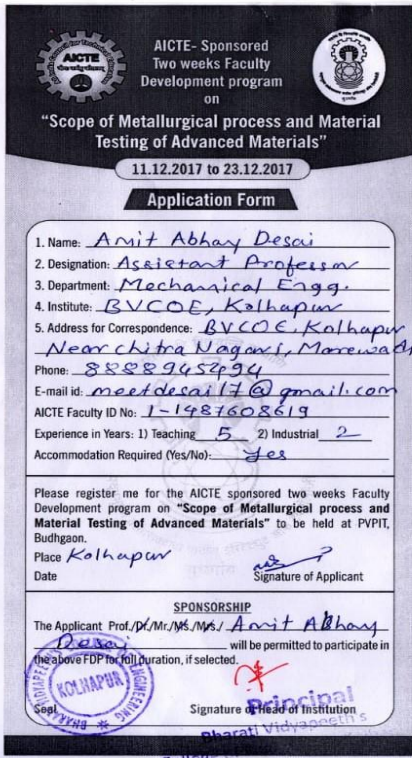 AICTE
AICTE- Sponsored
Two weeks Faculty
Development program
on
"Scope of Metallurgical process and Material
Testing of Advanced Materials"
11.12.2017 to 23.12.2017
Application Form
1. Name: Amit Abhay Desai
2. Designation: Assistant Professor
3. Department: Mechanical Engg.
4. Institute: BVCOE, Kolhapur
5. Address for Correspondence: BVCOE, Kolhapur
Near chitra Nagari, Morewadi
Phone: 8888945494
E-mail id: meetdesai17@gmail.com
AICTE Faculty ID No: 1-1487608619
Experience in Years: 1) Teaching 5 2) Industrial 2
Accommodation Required (Yes/No): Yes
Please register me for the AICTE sponsored two weeks Faculty
Development program on "Scope of Metallurgical process and
Material Testing of Advanced Materials" to be held at PVPIT,
Budhgaon.
Place Kolhapur
Date Signature of Applicant
SPONSORSHIP
The Applicant Prof./Dr./Mr./Ms./Mrs./ Amit Abhay
Desai will be permitted to participate in
the above FDP for full duration, if selected.
KOLHAPUR
Seal Signature of Head of Institution
Principal
Bharati Vidyapeeth's